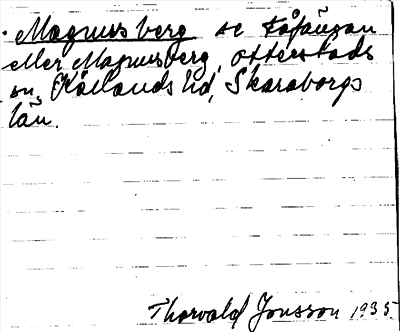 Magnusberg se Fåfängan
eller Magnusberg, Otterstads
sn, Kållands hd, Skaraborgs
län.
Thorvald Jonsson 1935